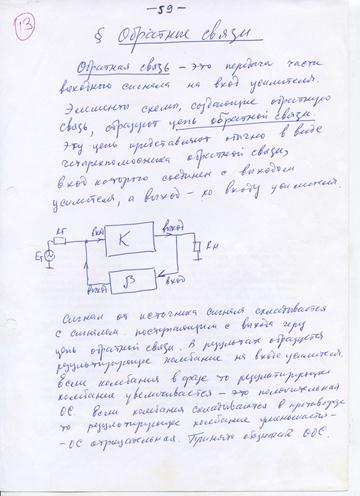 — 59 —
13
§ Обратные связи
Обратная связь – это передача части
выходного сигнала на вход усилителя.
Элементы схемы, создающие обратную
связь, образуют цепь обратной связи.
Эту цепь представляют обычно в виде
четырехполюсника обратной связи,
вход которого соединен с выходом
усилителя, а выход – ко входу усилителя.
вход K выход
Eг
Rн
выход β вход
Сигнал от источника сигнала складывается
с сигналом поступающим с выхода через
цепь обратной связи. В результате образуется
результирующее колебание на входе усилителя.
Если колебания в фазе то результирующее
колебание увеличивается – это положительная
ОС. Если колебания складываются в противофазе
то результирующее колебание уменьшается –
– ОС отрицательная. Принято ООС.